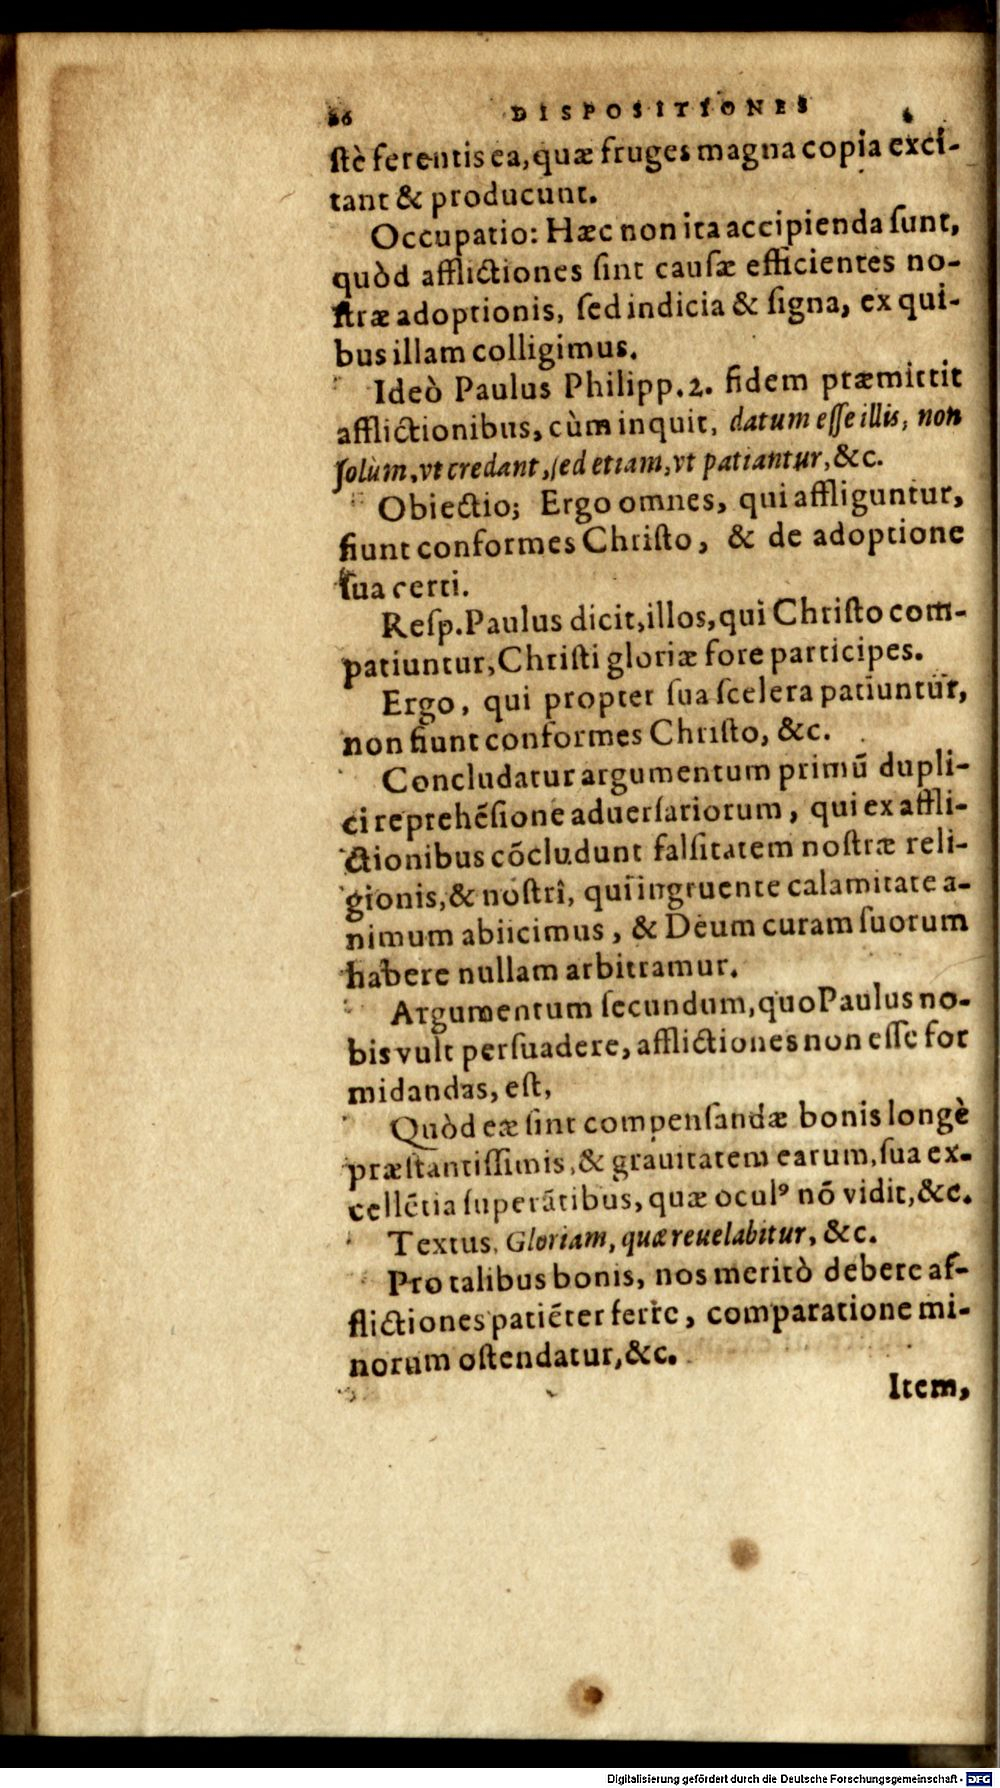 86 DISPOSITIONES
stè ferentis ea, quæ fruges magna copia exci-
tant & producunt.
Occupatio: Hæc non ita accipienda sunt,
quòd afflictiones sint causæ efficientes no-
stræ adoptionis, sed indicia & signa, ex qui-
bus illam colligimus.
Ideò Paulus Philipp. 2. fidem præmittit
afflictionibus, cùm inquit, datum esse illis, non
solùm, vt credant, sed etiam, vt patiantur, &c.
Obiectio; Ergo omnes, qui affliguntur,
fiunt conformes Christo, & de adoptione
sua certi.
Resp. Paulus dicit, illos, qui Christo com-
patiuntur, Christi gloriæ fore participes.
Ergo, qui propter sua scelera patiuntur,
non fiunt conformes Christo, &c.
Concludatur argumentum primũ dupli-
ci reprehẽsione aduersariorum, qui ex affli-
ctionibus cõcludunt falsitatem nostræ reli-
gionis, & nostri, qui ingruente calamitate a-
nimum abiicimus, & Deum curam suorum
habere nullam arbitramur.
Argumentum secundum, quo Paulus no-
bis vult persuadere, afflictiones non esse for
midandas, est,
Quòd eæ sint compensandæ bonis longè
præstantissimis, & grauitatem earum, sua ex-
cellẽtia superãtibus, quæ oculꝰ nõ vidit, &c.
Textus. Gloriam, quæ reuelabitur, &c.
Pro talibus bonis, nos meritò debere af-
flictiones patiẽter ferre, comparatione mi-
norum ostendatur, &c.
Item,
Digitalisierung gefördert durch die Deutsche Forschungsgemeinschaft - DFG